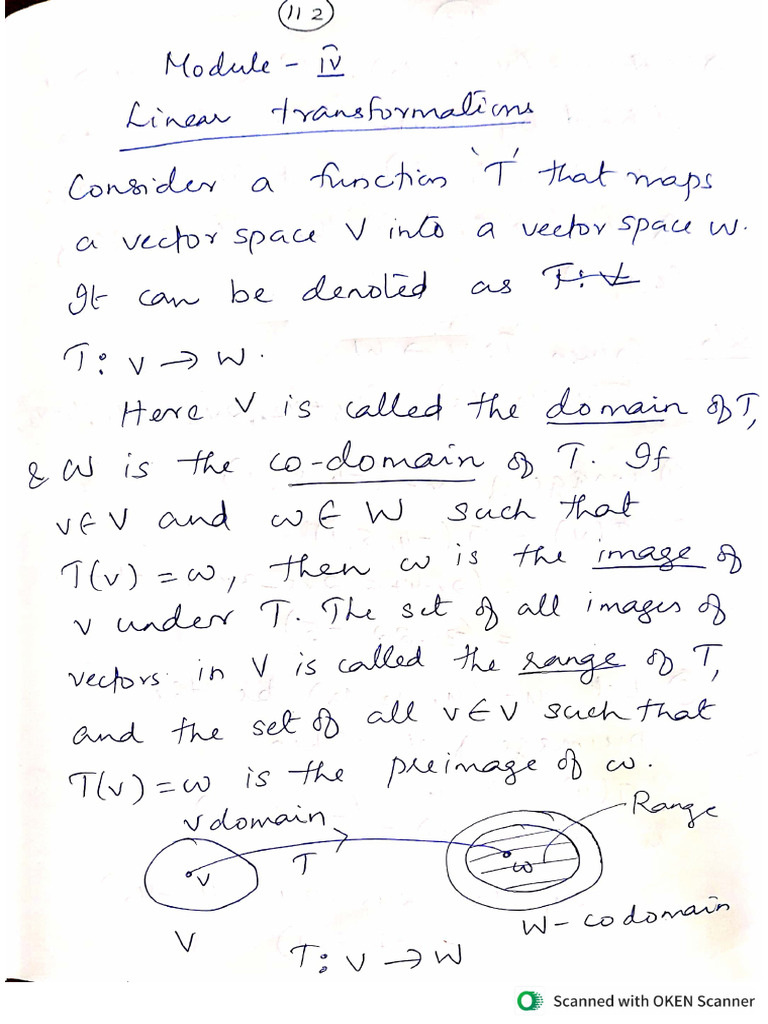 112
Module - IV
Linear transformations
Consider a function 'T' that maps
a vector space V into a vector space W.
It can be denoted as T: V
T: V → W.
Here V is called the domain of T,
& W is the co-domain of T. If
v ∈ V and w ∈ W such that
T(v) = w, then w is the image of
v under T. The set of all images of
vectors in V is called the range of T,
and the set of all v ∈ V such that
T(v) = w is the preimage of w.
V domain
Range
v
T
w
W - codomain
V
T: V → W
Scanned with OKEN Scanner